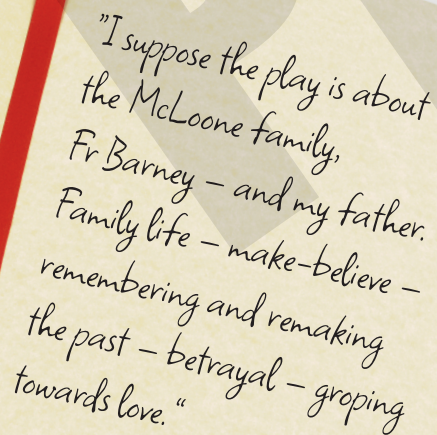 "I suppose the play is about
the McLoone family,
Fr Barney – and my father.
Family life – make-believe –
remembering and remaking
the past – betrayal – groping
towards love."